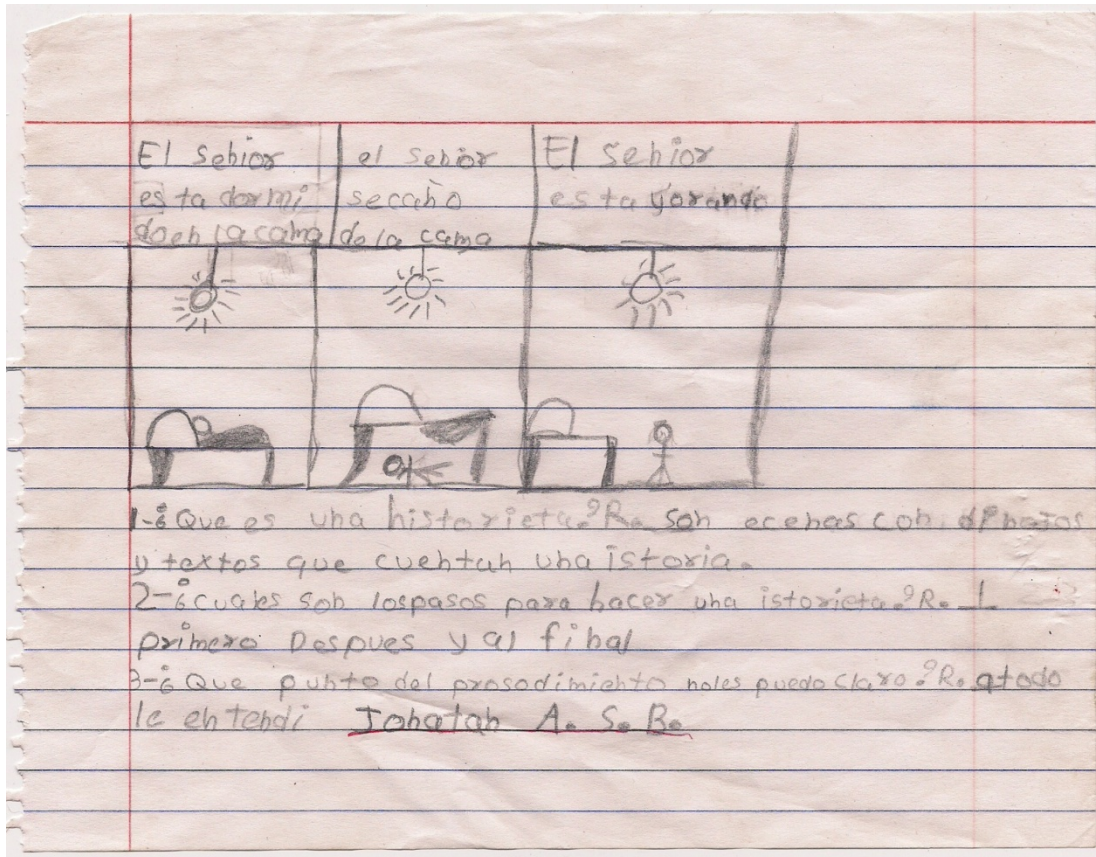 El señior
esta dormi
do en la cama
el señior
secaño
de la cama
El señior
esta yorando
1-¿Que es una historieta? R. son ecenas con dibujos
y textos que cuentan una istoria.
2-¿cuales son lospasos para hacer una istorieta? R. 1
primero Despues y al final
3-¿Que punto del prosodimiento noles puedo claro? R. atodo
le entendi Jonatan A. S. B.